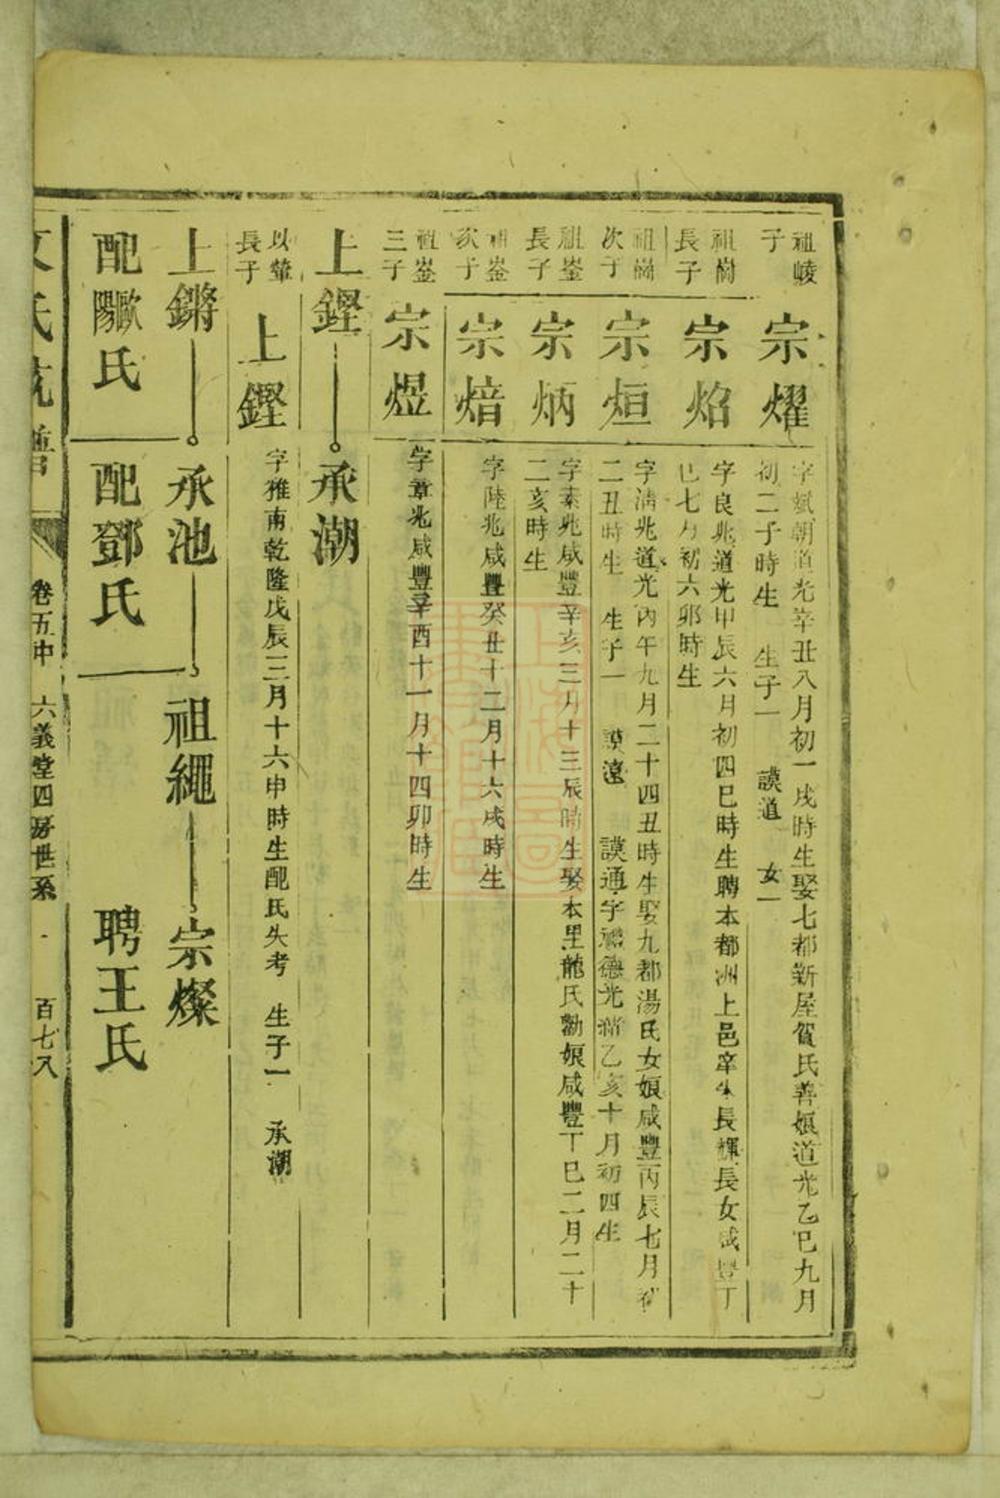 祖崚
子
宗燿
字斌朝道光辛丑八月初一戌時生娶七都新屋賀氏善娘道光乙巳九月
初二子時生 生子一 謨道 女一
祖崗
長子
宗焰
字良兆道光甲辰六月初四巳時生聘本都洲上邑庠生長輝長女咸豐丁
巳七月初六卯時生
祖崗
次子
宗烜
字清兆道光丙午九月二十四丑時生娶九都湯氏女娘咸豐丙辰七月初
二丑時生 生子一 謨遠 謨通字禮德光緒乙亥十月初四生
祖崟
長子
宗炳
字素兆咸豐辛亥三月十三辰時生娶本里龍氏勤娘咸豐丁巳二月二十
二亥時生
祖崟
次子
宗焙
字陸兆咸豐癸丑十二月十六戌時生
祖崟
三子
宗煜
字章兆咸豐辛酉十一月十四卯時生
上鏗 承潮
以輦
長子
上鏗
字雅南乾隆戊辰三月十六申時生配氏失考 生子一 承潮
上鏘 承池 祖繩 宗燦
配歐陽氏 配鄧氏 聘王氏
文氏族譜 卷五中 六義堂四房世系 百七八